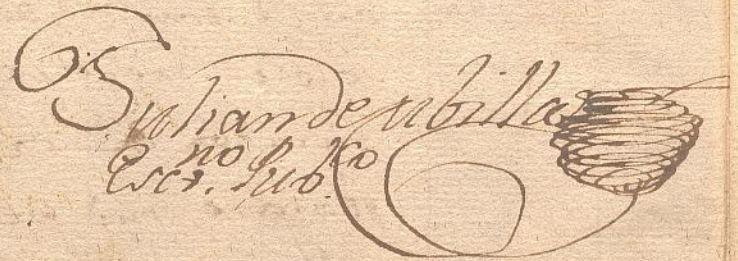 Julian de ubilla
Escrno. Pubco